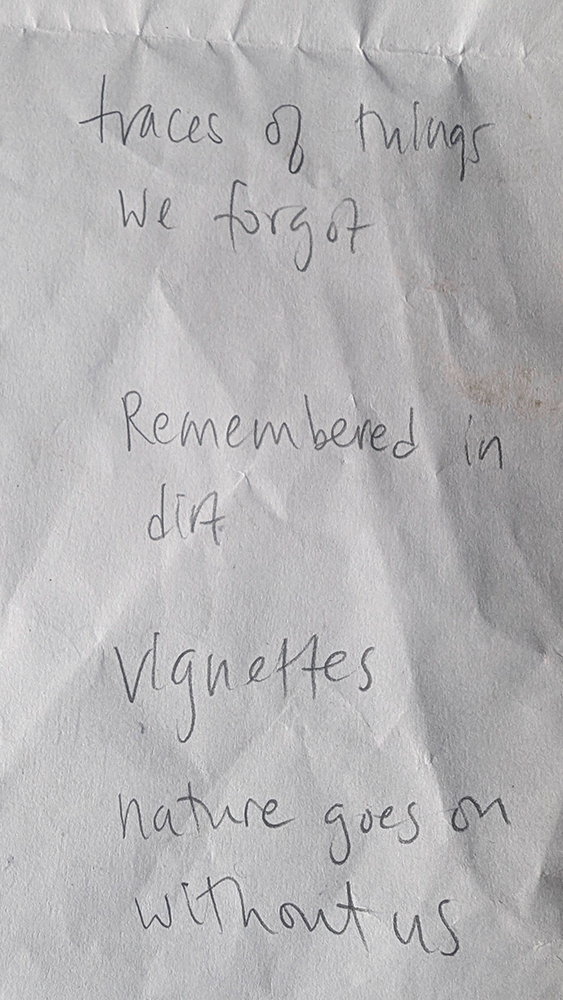 traces of things
We forgot
Remembered in
dirt
Vignettes
nature goes on
without us